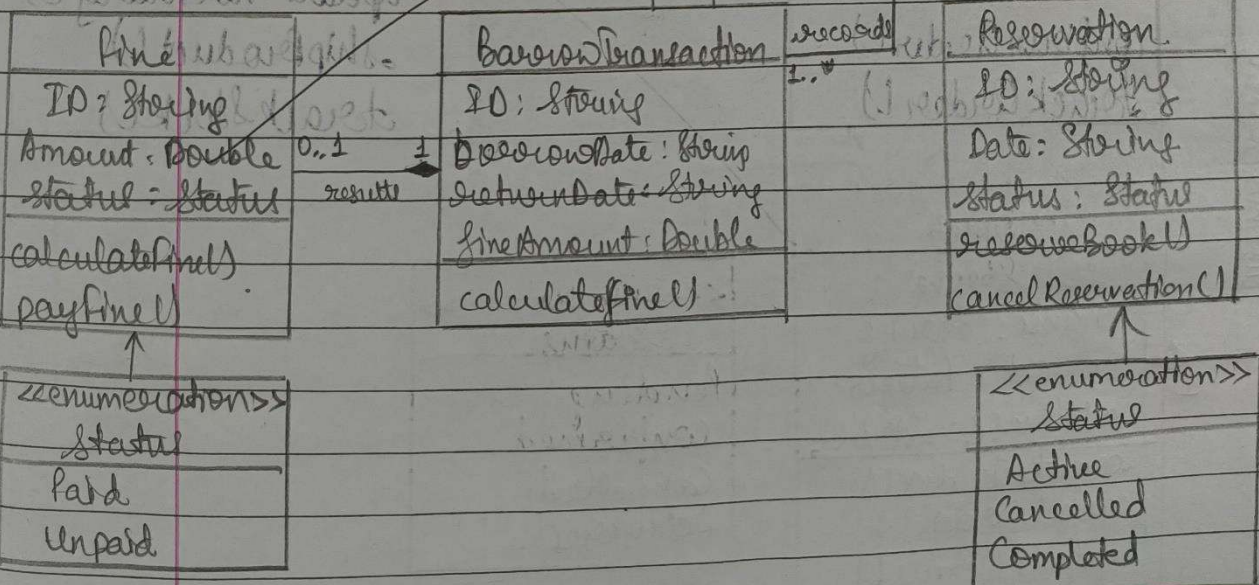 Fine
ID: String
Amount: Double
status: Status
calculateFine()
payFine()
0..1
1
results
BorrowTransaction
ID: String
borrowDate: String
returnDate: String
fineAmount: Double
calculateFine()
records
1..*
Reservation
ID: String
Date: String
status: Status
reserveBook()
cancelReservation()
<<enumeration>>
Status
Paid
Unpaid
<<enumeration>>
Status
Active
Cancelled
Completed